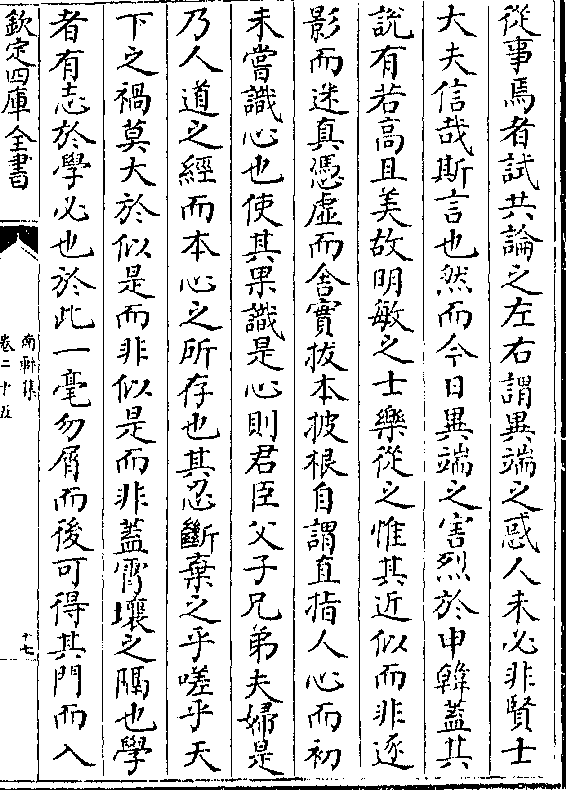 從事焉者試共論之左右謂異端之惑人未必非賢士
大夫信哉斯言也然而今日異端之害烈於申韓蓋其
說有若高且美故明敏之士樂從之惟其近似而非逐
影而迷真憑虛而舍實拔本披根自謂直指人心而初
未嘗識心也使其果識是心則君臣父子兄弟夫婦是
乃人道之經而本心之所存也其忍斷棄之乎嗟乎天
下之禍莫大於似是而非似是而非蓋霄壤之隔也學
者有志於學必也於此一毫勿屑而後可得其門而入
欽定四庫全書
南軒集
卷二十五
十七